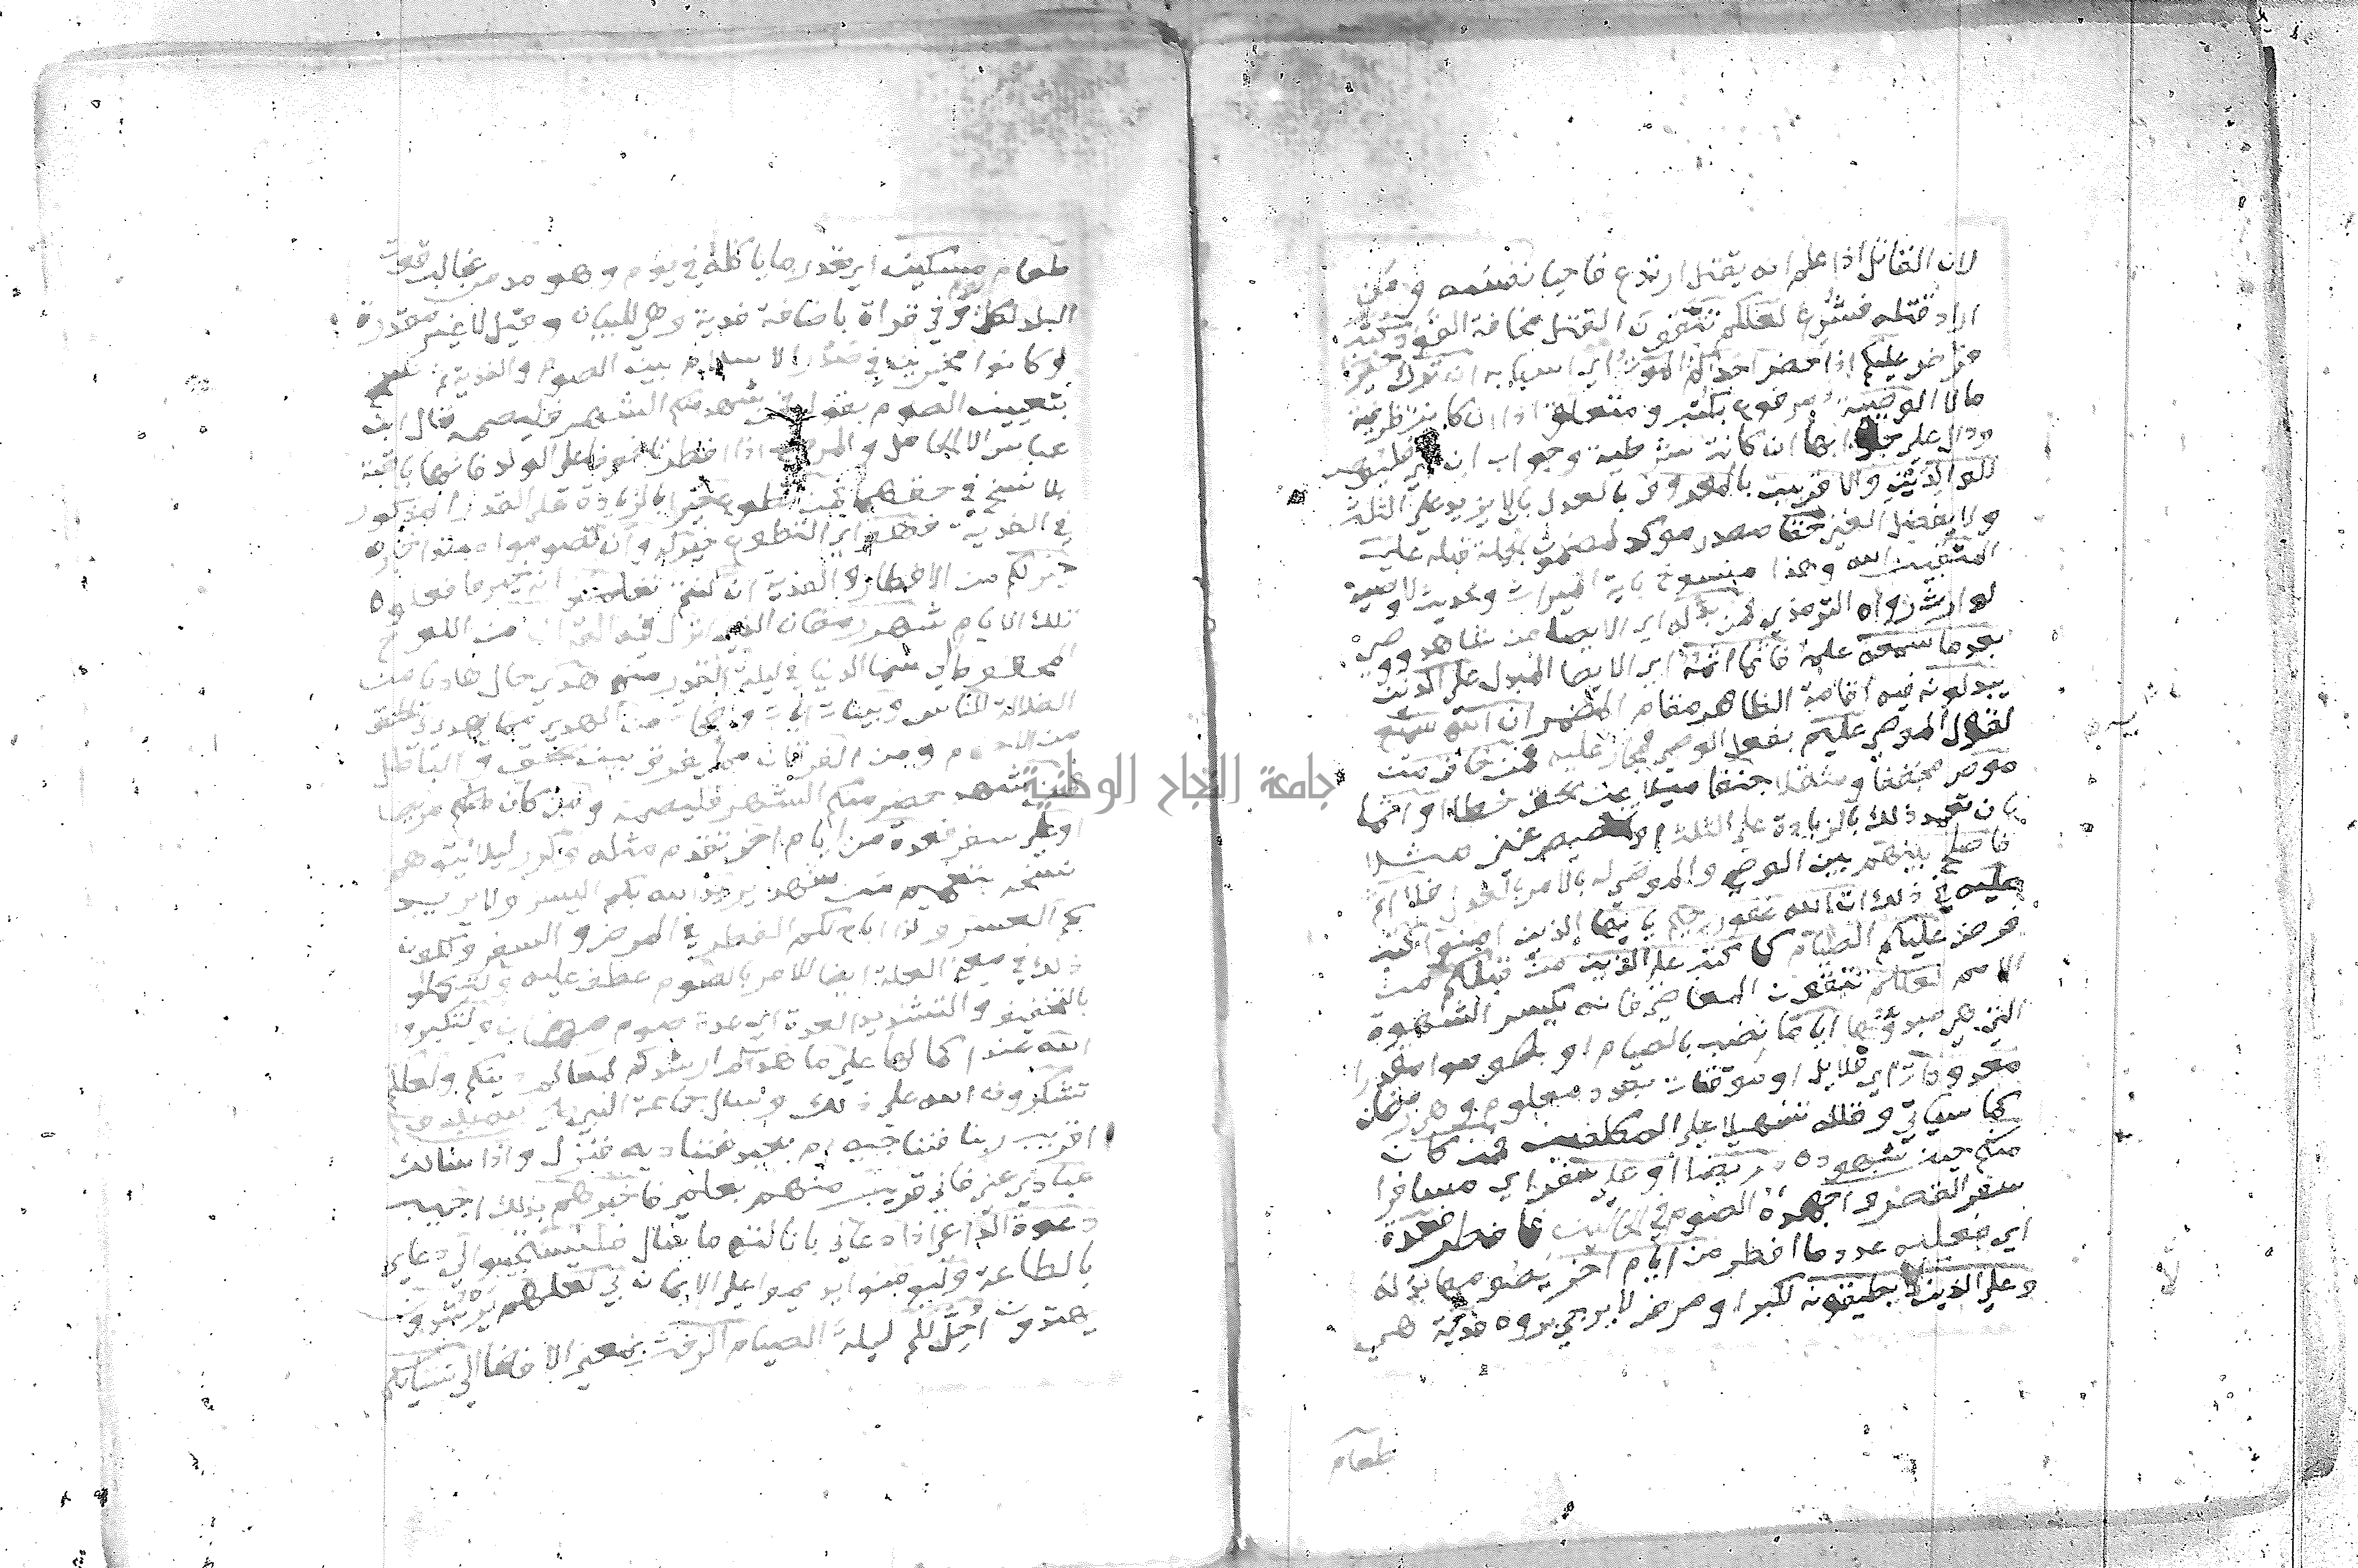 لان القاتل اذا علم انه يقتل ارتدع فاحيا نفسه ومن
اراد قتله فشرع لعلكم تتقون القتل مخافة القود كتب
فرض عليكم اذا حضر احدكم الموت اي اسبابه ان ترك خيرا
مالا الوصية مرفوع بكتب ومتعلق اذا ان كانت ظرفية
ودال على جوابها ان كانت شرطية وجواب ان اي فليوص
للوالدين والاقربين بالمعروف بالعدل بان لا يزيد على الثلث
ولا يفضل الغني حقا مصدر موكد لمضمون الجملة قبله على
المتقين الله وهذا منسوخ باية الميراث وبحديث لا وصية
لوارث رواه الترمذي فمن بدله اي الايصا من شاهد ووصي
بعد ما سمعه علمه فانما اثمه اي الايصا المبدل على الذين
يبدلونه فيه اقامة الظاهر مقام المضمر ان الله سميع
لقول الموصي عليم بفعل الوصي فمجاز عليه فمن خاف من
موص مخففا ومثقلا جنفا ميلا عن الحق خطا او اثما
بان تعمد ذلك بالزيادة على الثلث او تخصيص غني مثلا
فاصلح بينهم بين الوصي والموصى له بالامر بالعدل فلا اثم
عليه في ذلك ان الله غفور رحيم يا يها الذين امنوا كتب
فرض عليكم الصيام كما كتب على الذين من قبلكم من
الامم لعلكم تتقون المعاصي فانه يكسر الشهوة
التي هي مبدؤها اياما نصب بالصيام او بصوموا مقدرا
معدودات اي قلايل او موقتات بعدد معلوم وهي رمضان
كما سياتي وقلله تسهيلا على المكلفين فمن كان
منكم حين شهوده مريضا او على سفر اي مسافرا
سفر القصر واجهده الصوم في الحالين فافطر فعدة
اي فعليه عدد ما افطر من ايام اخر يصومها بدله
وعلى الذين لا يطيقونه لكبر او مرض لا يرجى بروه فدية هي
طعام
طعام مسكين اي بقدر ما ياكله في يوم وهو مد من غالب قوت
البلد لكل يوم وفي قراة باضافة فدية وهي للبيان وقيل لا غير مقدرة
وكانوا مخيرين في صدر الاسلام بين الصوم والفدية ثم نسخ
بتعيين الصوم بقوله فمن شهد منكم الشهر فليصمه قال ابن
عباس الا الحامل والمرضع اذا افطرتا خوفا على الولد فانها باقية
بلا نسخ في حقهما فمن تطوع خيرا بالزيادة على القدر المذكور
في الفدية فهو اي التطوع خير له وان تصوموا مبتدا خبره
خير لكم من الافطار والفدية ان كنتم تعلمون انه خير فافعلوه
تلك الايام شهر رمضان الذي انزل فيه القران من اللوح
المحفوظ الى سما الدنيا في ليلة القدر منه هدى حال هاديا من
الضلالة للناس وبينات ايات واضحات من الهدى مما يهدي الى الحق
من الاحكام ومن الفرقان مما يفرق بين الحق والباطل
فمن شهد حضر منكم الشهر فليصمه ومن كان منكم مريضا
او على سفر فعدة من ايام اخر تقدم مثله وكرر ليلا يتوهم
نسخه بتعميم من شهد يريد الله بكم اليسر ولا يريد
بكم العسر ولذا اباح لكم الفطر في المرض والسفر ولكون
ذلك في معنى العلة ايضا للامر بالصوم عطف عليه ولتكملوا
بالتخفيف والتشديد العدة اي عدة صوم رمضان ولتكبروا
الله عند اكمالها على ما هداكم ارشدكم لمعالم دينكم ولعلكم
تشكرون الله على ذلك وسال جماعة النبي صلى الله عليه وسلم
اقريب ربنا فنناجيه ام بعيد فنناديه فنزل واذا سالك
عبادي عني فاني قريب منهم بعلمي فاخبرهم بذلك اجيب
دعوة الداعي اذا دعاني بانالته ما سال فليستجيبوا لي دعاي
بالطاعة وليومنوا يديموا على الايمان بي لعلهم يرشدون
يهتدون احل لكم ليلة الصيام الرفث بمعنى الافضا الى نسايكم
جامعة النجاح الوطنية